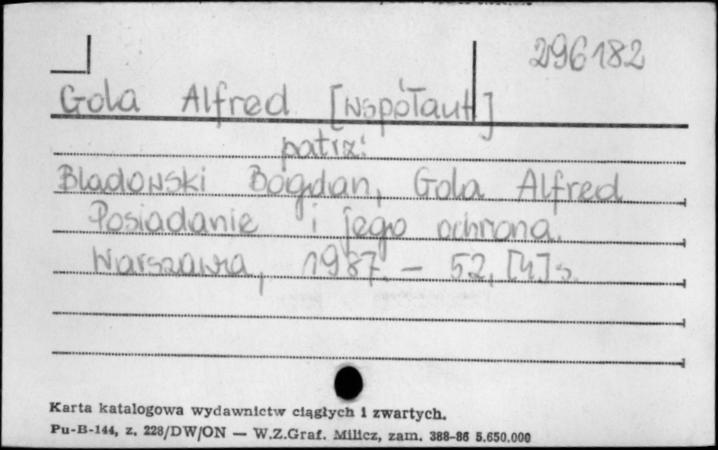 296182
Gola Alfred [współaut]
patrz:
Bladowski Bogdan, Gola Alfred
Posiadanie i jego ochrona.
Warszawa, 1987. – 52, [4] s.
Karta katalogowa wydawnictw ciągłych i zwartych.
Pu-B-144, z. 228/DW/ON — W.Z.Graf. Milicz, zam. 388-86 5.650.000